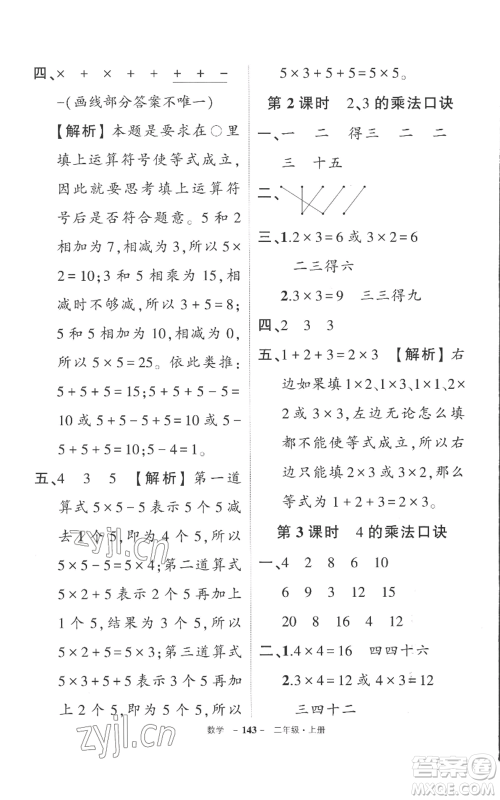 四、× + × + + + -
-(画线部分答案不唯一)
【解析】本题是要求在○里
填上运算符号使等式成立,
因此就要思考填上运算符
号后是否符合题意。5 和 2
相加为 7,相减为 3,所以 5×
2=10;3 和 5 相乘为 15,相
减时不够减,所以 3+5=8;
5 和 5 相加为 10,相减为 0,
所以 5×5=25。依此类推:
5+5-5=5;5+5-5=5
或 5-5+5=5;5+5=10
或 5+5=10;5-4=1。
五、4 3 5 【解析】第一道
算式 5×5-5 表示 5 个 5 减
去 1 个 5,即为 4 个 5,所以
5×5-5=5×4;第二道算式
5×2+5 表示 2 个 5 再加上
1 个 5,结果为 3 个 5,所以
5×2+5=5×3;第三道算式
5×3+5+5 表示 3 个 5 再
加上 2 个 5,即为 5 个 5,所以
5×3+5+5=5×5。
第 2 课时 2、3 的乘法口诀
一、一 二 得三 二 二
三 十五
二、
三、1.2×3=6 或 3×2=6
二三得六
2.3×3=9 三三得九
四、2 3 3
五、1+2+3=2×3 【解析】右
边如果填 1×2、1×3、1×1、2×2
或 3×3,那么左边无论怎么填
都不能使等式成立,所以右边
只能填 2×3 或 3×2,那么
等式为 1+2+3=2×3。
第 3 课时 4 的乘法口诀
一、4 2 8 6 10
6 9 12 3 12
20 8 16 4 12
二、1.4×4=16 四四十六
2.4×3=12 或 3×4=12
三四十二
数学 - 143 - 二年级·上册
zyjl.cn
zyjl.cn
作业精灵